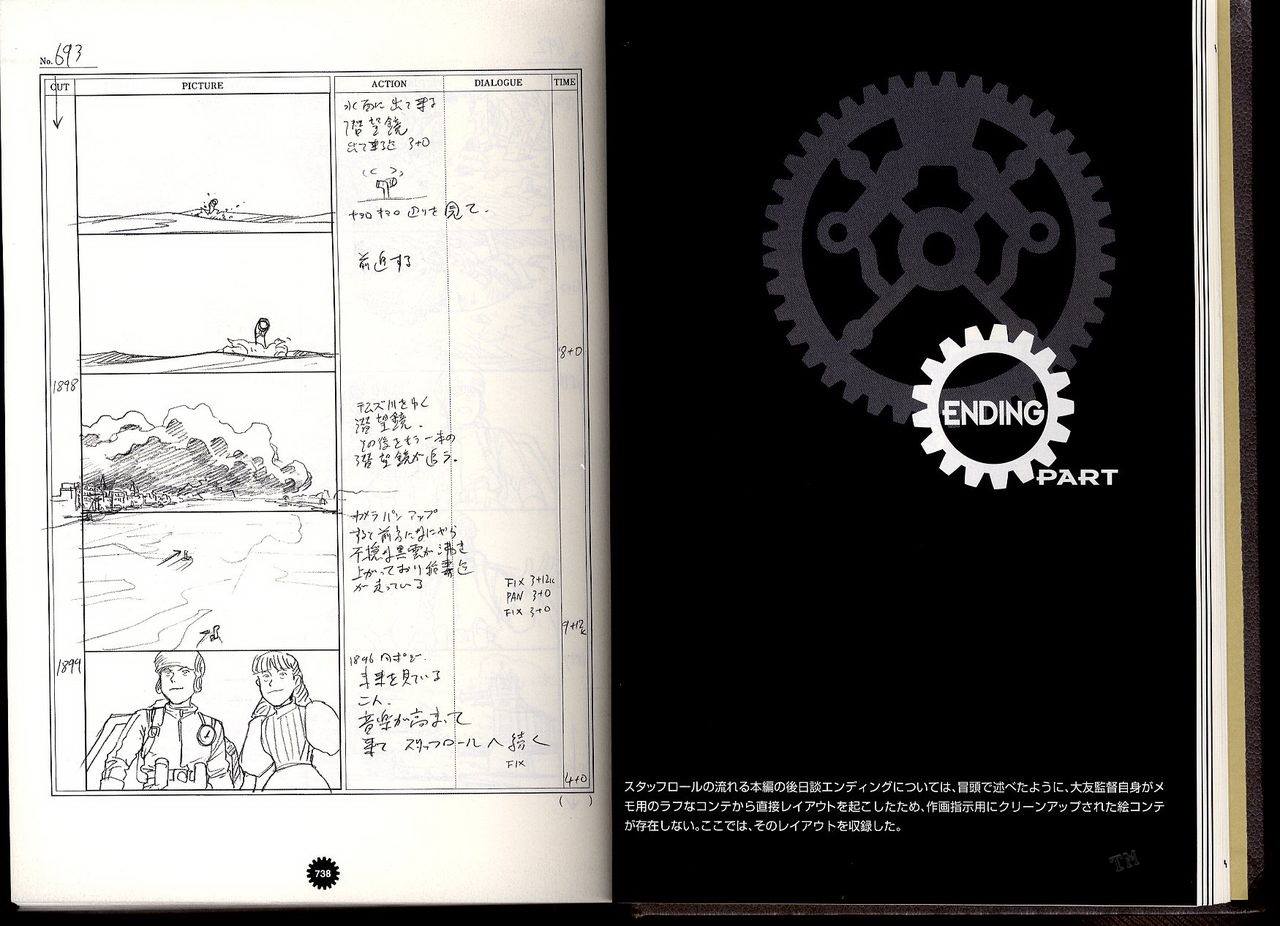 No. 693
CUT PICTURE ACTION DIALOGUE TIME
水面に出て来る
潜望鏡
出て来る迄 3+0
キョロキョロ 辺りを見て.
前進する
8+0
1898
テムズ川をゆく
潜望鏡.
その後をもう一本の
潜望鏡が追う.
カメラパンアップ
すると前方になにやら
不穏な黒雲が沸き
上がっており稲妻
が走っている
FIX 3+12K
PAN 3+0
FIX 3+0
9+12K
1899
1896 同ポジ.
未来を見ている
二人.
音楽が高まって
来て スタッフロールへ続く
FIX
4+0
( )
738
ENDING
PART
スタッフロールの流れる本編の後日談エンディングについては、冒頭で述べたように、大友監督自身がメ
モ用のラフなコンテから直接レイアウトを起こしたため、作画指示用にクリーンアップされた絵コンテ
が存在しない。ここでは、そのレイアウトを収録した。
TM